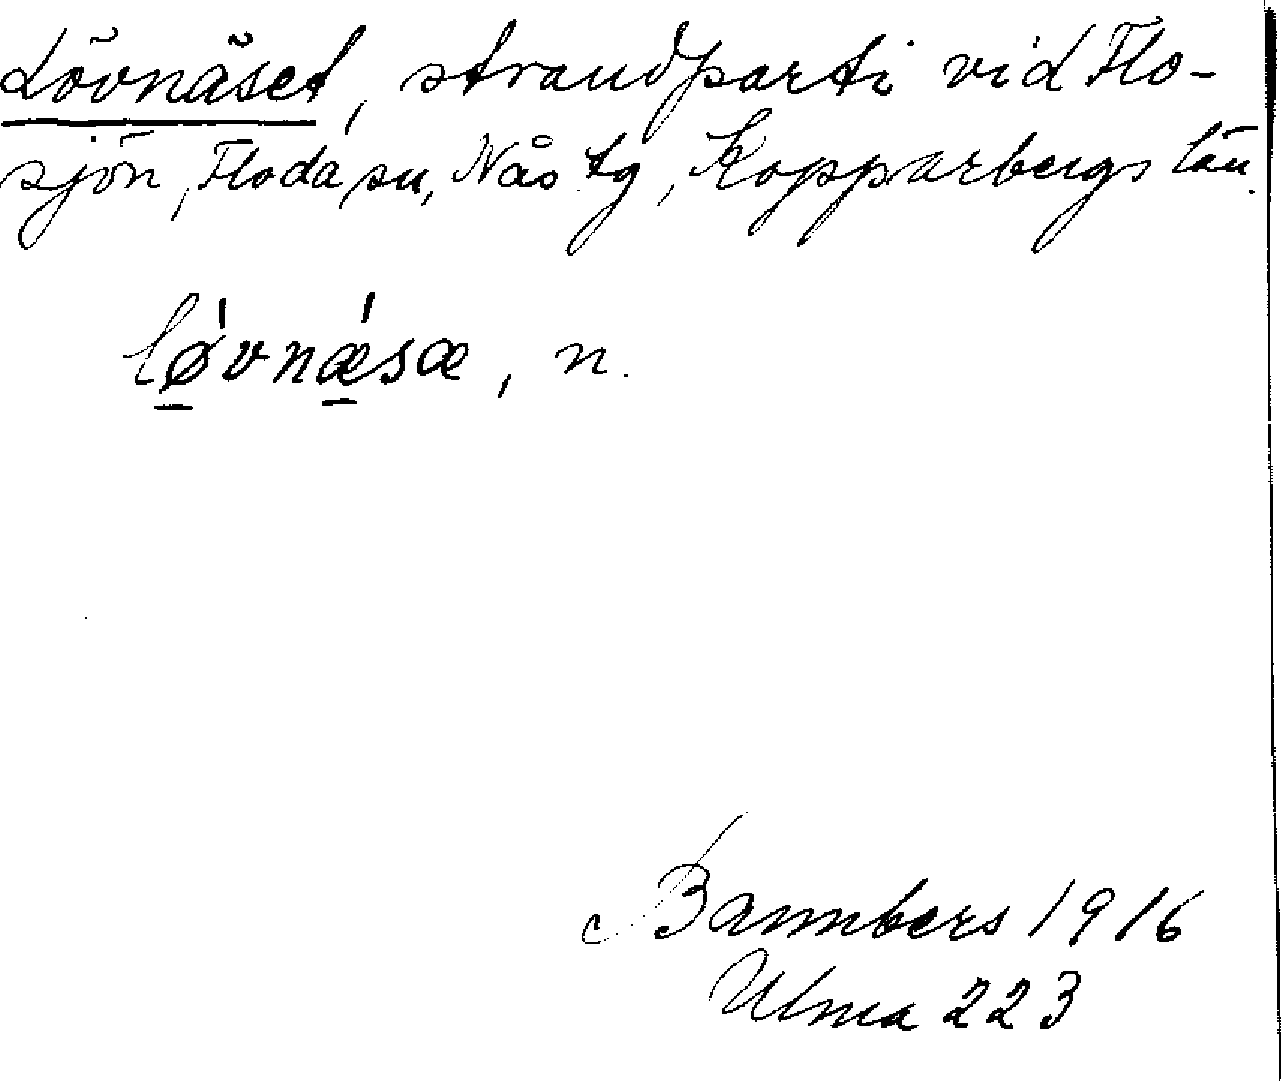 Lövnäset, strandparti vid Flo-
sjön, Floda sn, Nås tg, Kopparbergs län.
lǿ̱vnǽ̱sæ, n.
Bannbers 1916
Ulma 223